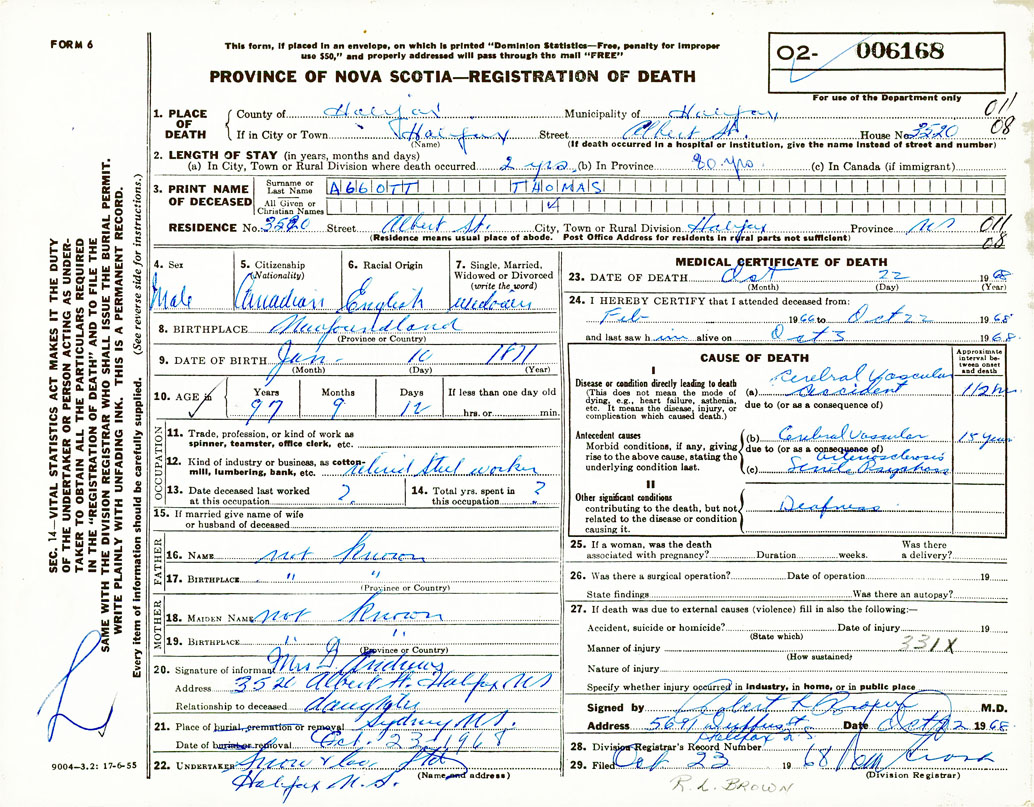 FORM 6
This form, if placed in an envelope, on which is printed "Dominion Statistics—Free, penalty for improper
use $50," and properly addressed will pass through the mail "FREE"
PROVINCE OF NOVA SCOTIA—REGISTRATION OF DEATH
02- 006168
For use of the Department only
1. PLACE OF DEATH County of Halifax Municipality of Halifax 011
If in City or Town Halifax Street Albert St. House No. 3520 08
(Name) (If death occurred in a hospital or institution, give the name instead of street and number)
2. LENGTH OF STAY (in years, months and days)
(a) In City, Town or Rural Division where death occurred 2 yrs. (b) In Province 80 yrs. (c) In Canada (if immigrant)
3. PRINT NAME OF DECEASED Surname or Last Name ABBOTT THOMAS
All Given or Christian Names
RESIDENCE No. 3520 Street Albert St. City, Town or Rural Division Halifax Province NS 011
(Residence means usual place of abode. Post Office Address for residents in rural parts not sufficient) 08
SEC. 14—VITAL STATISTICS ACT MAKES IT THE DUTY
OF THE UNDERTAKER OR PERSON ACTING AS UNDER-
TAKER TO OBTAIN ALL THE PARTICULARS REQUIRED
IN THE "REGISTRATION OF DEATH" AND TO FILE THE
SAME WITH THE DIVISION REGISTRAR WHO SHALL ISSUE THE BURIAL PERMIT.
WRITE PLAINLY WITH UNFADING INK. THIS IS A PERMANENT RECORD.
Every item of information should be carefully supplied. (See reverse side for instructions.)
4. Sex 5. Citizenship 6. Racial Origin 7. Single, Married,
(Nationality) Widowed or Divorced
(write the word)
Male Canadian English widower
8. BIRTHPLACE Newfoundland
(Province or Country)
9. DATE OF BIRTH Jan. 10 1871
(Month) (Day) (Year)
10. AGE in Years Months Days If less than one day old
97 9 12 hrs. or min.
OCCUPATION
11. Trade, profession, or kind of work as
spinner, teamster, office clerk, etc.
12. Kind of industry or business, as cotton-
mill, lumbering, bank, etc. retired steel worker
13. Date deceased last worked 14. Total yrs. spent in
at this occupation ? this occupation ?
15. If married give name of wife
or husband of deceased
FATHER
16. NAME not known
17. BIRTHPLACE " "
(Province or Country)
MOTHER
18. MAIDEN NAME not known
19. BIRTHPLACE " "
(Province or Country)
20. Signature of informant Mrs G Andrews
Address 3520 Albert St. Halifax NS
Relationship to deceased daughter
21. Place of burial, cremation or removal Sydney N.S.
Date of burial or removal Oct. 23 1968
22. UNDERTAKER Snow & Co. Ltd
(Name and address)
Halifax N.S.
9004—3.2: 17-6-55
MEDICAL CERTIFICATE OF DEATH
23. DATE OF DEATH Oct 22 1968
(Month) (Day) (Year)
24. I HEREBY CERTIFY that I attended deceased from:
Feb 1966 to Oct 22 1968
and last saw him alive on Oct 3 1968.
CAUSE OF DEATH
Approximate
interval be-
tween onset
and death
I
Disease or condition directly leading to death
(This does not mean the mode of
dying, e.g., heart failure, asthenia,
etc. It means the disease, injury, or
complication which caused death.)
Cerebral Vascular
(a) accident 1/2 hr.
due to (or as a consequence of)
Antecedent causes
Morbid conditions, if any, giving
rise to the above cause, stating the
underlying condition last.
(b) Cerebral Vascular 15 years
due to (or as a consequence of)
arteriosclerosis
(c) Senile Psychosis
II
Other significant conditions
contributing to the death, but not
related to the disease or condition
causing it.
Deafness
25. If a woman, was the death Was there
associated with pregnancy? Duration weeks. a delivery?
26. Was there a surgical operation? Date of operation 19
State findings Was there an autopsy?
27. If death was due to external causes (violence) fill in also the following:—
Accident, suicide or homicide? Date of injury 19
(State which)
Manner of injury 331X
(How sustained)
Nature of injury
Specify whether injury occurred in industry, in home, or in public place
Signed by Robert M.D.
Address 5691 Duffus St Date Oct 22 1968.
Halifax N.S.
28. Division Registrar's Record Number
29. Filed Oct 23 1968
(Division Registrar)
R. L. BROWN